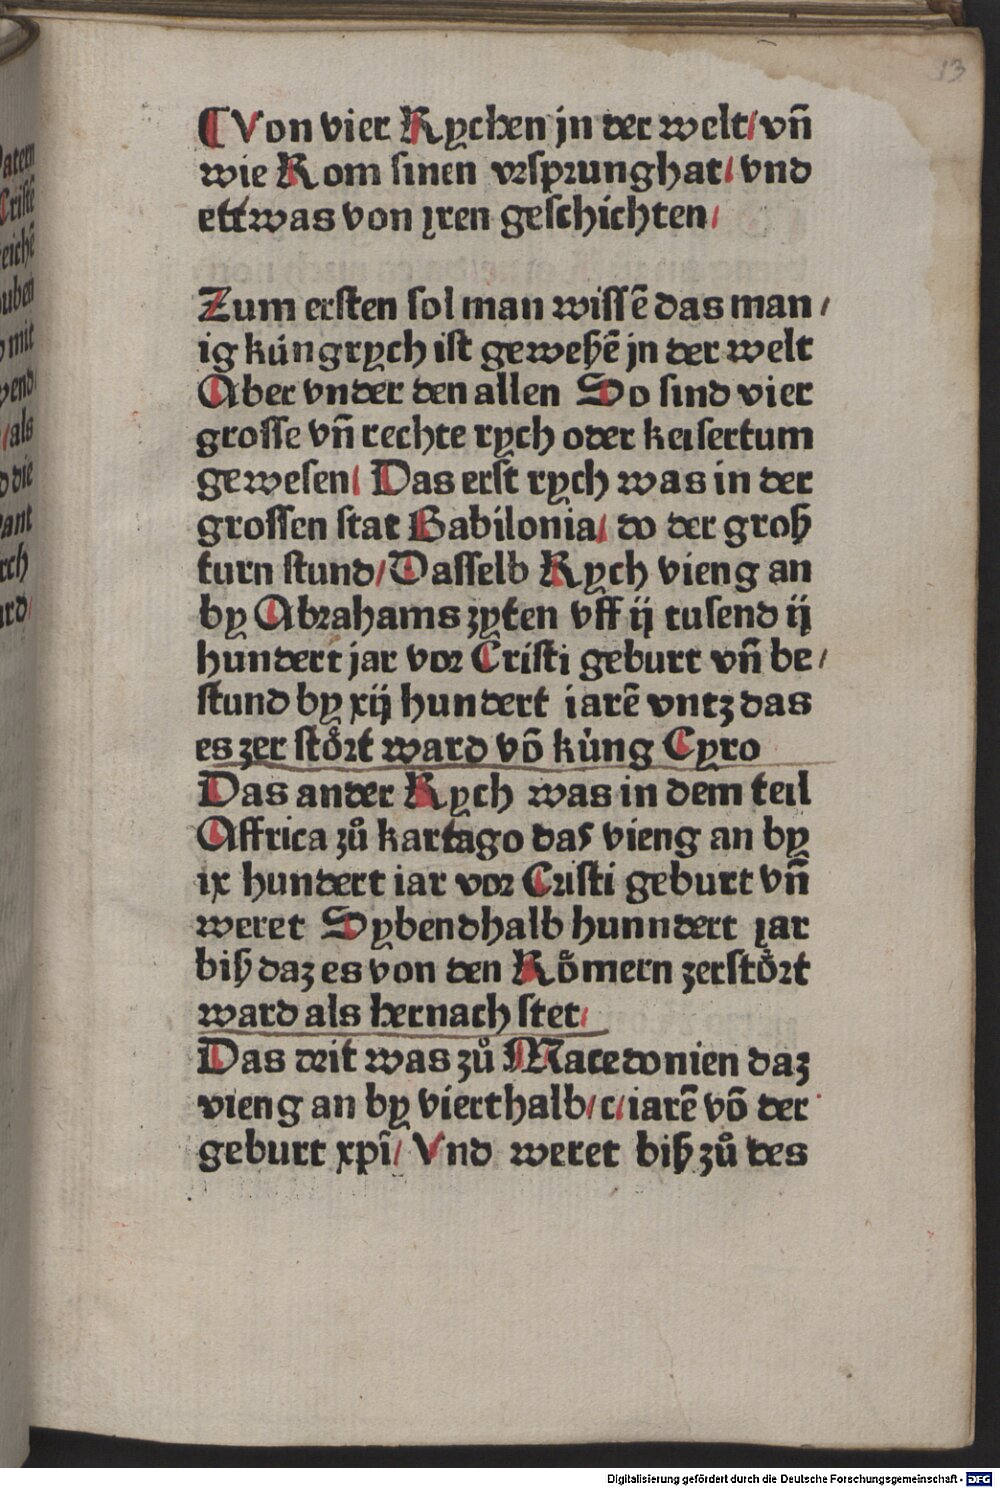 13
¶ Von vier Rychen jn der welt/ vn̄
wie Rom sinen vrsprung hat/ vnd
ettwas von yren geschichten/
Zum ersten sol man wissē das man/
ig kúngrych ist geweßē jn der welt
Aber vnder den allen So sind vier
grosse vn̄ rechte rych oder keisertum
gewesen/ Das erst rych was in der
grossen stat Babilonia/ do der groß
turn stund/ Dasselb Rych vieng an
by Abrahams zyten vff ij tusend ij
hundert jar vor Cristi geburt vn̄ be/
stund by xij hundert iarē vntz das
es zer stoͤrt ward vō kúng Cyro
Das ander Rych was in dem teil
Affrica zuͦ kartago das vieng an by
ix hundert iar vor Cristi geburt vn̄
weret Sybendhalb hunndert jar
biß daz es von den Roͤmern zerstoͤrt
ward als hernach stet/
Das drit was zuͦ Macedonien daz
vieng an by vierthalb/ c/ iarē vō der
geburt xpī/ Vnd weret biß zuͦ des
atern
Criste
eichē
ouben
mit
/als
d die
ant
rch
ard/
Digitalisierung gefördert durch die Deutsche Forschungsgemeinschaft - DFG